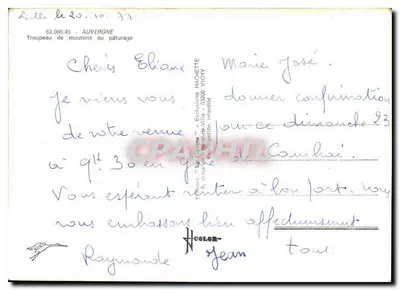 Lille le 20.10.77
63.000.45 - AUVERGNE
Troupeau de moutons au pâturage
Chères Eliane Marie José.
Je viens vous donner confirmation
de votre venue pour ce dimanche 23
à 9h 30 en gare de Cambrai.
Vous espérant rentrer à bon port, nous
vous embrassons bien affectueusement
tous.
Raymonde Jean
COLOR
CPARAMA.COM